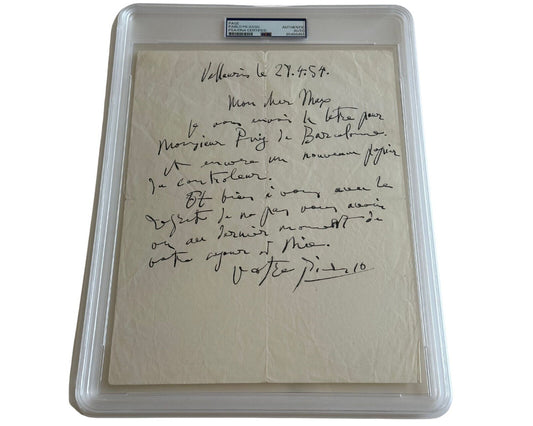 PAGE
PABLO PICASSO
PSA/DNA CERTIFIED
AUTHENTIC
AUTO
Vallauris le 27.4.54.
Mon cher Max
Je vous envois la lettre pour
Monsieur Puig de Barcelone.
et encore un nouveau papier
du controleur.
Et bien à vous avec le
regrets de ne pas vous avoir
vu au dernier moment de
votre sejour à Nice.
votre Picasso